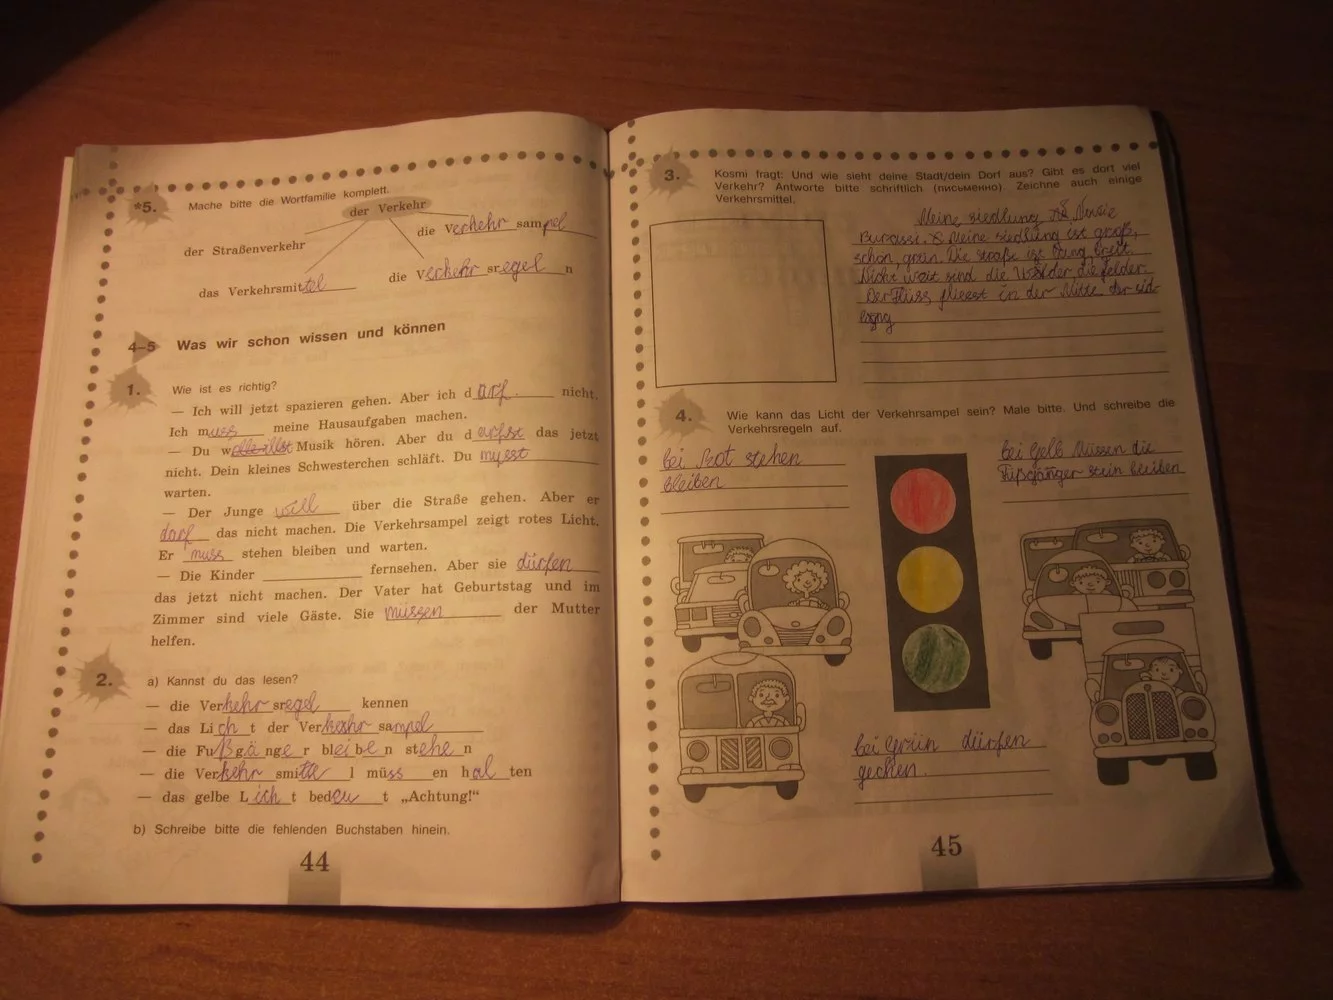 *5. Mache bitte die Wortfamilie komplett.
der Verkehr
der Straßenverkehr
die Verkehr sampel
das Verkehrsmittel
die Verkehr sregel n
4–5 Was wir schon wissen und können
1. Wie ist es richtig?
— Ich will jetzt spazieren gehen. Aber ich darf nicht.
Ich muss meine Hausaufgaben machen.
— Du w Musik hören. Aber du d das jetzt
nicht. Dein kleines Schwesterchen schläft. Du
warten.
— Der Junge will über die Straße gehen. Aber er
darf das nicht machen. Die Verkehrsampel zeigt rotes Licht.
Er muss stehen bleiben und warten.
— Die Kinder ____ fernsehen. Aber sie dürfen
das jetzt nicht machen. Der Vater hat Geburtstag und im
Zimmer sind viele Gäste. Sie müssen der Mutter
helfen.
2. a) Kannst du das lesen?
— die Verkehr sregel kennen
— das Li ch t der Verkehr sampel
— die Fu ßgänge r bl ei be n st ehe n
— die Verkehr smitte l müss en h al ten
— das gelbe L ich t bed eu t „Achtung!“
b) Schreibe bitte die fehlenden Buchstaben hinein.
44
3. Kosmi fragt: Und wie sieht deine Stadt/dein Dorf aus? Gibt es dort viel
Verkehr? Antworte bitte schriftlich (письменно). Zeichne auch einige
Verkehrsmittel.
Meine siedlung
Meine siedlung ist groß,
schon, grün. Die ist lang, breit.
Nicht weit sind die die felder
Der Fluss in der Mitte der sid-
4. Wie kann das Licht der Verkehrsampel sein? Male bitte. Und schreibe die
Verkehrsregeln auf.
bei Rot stehen
bleiben
bei Gelb Müssen die
bleiben
bei Grün dürfen
gechen.
45